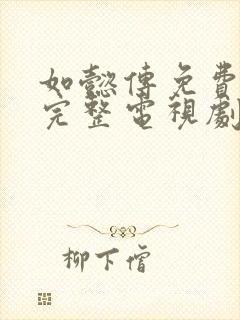 如懿傳免費
完整電視劇
柳下僧